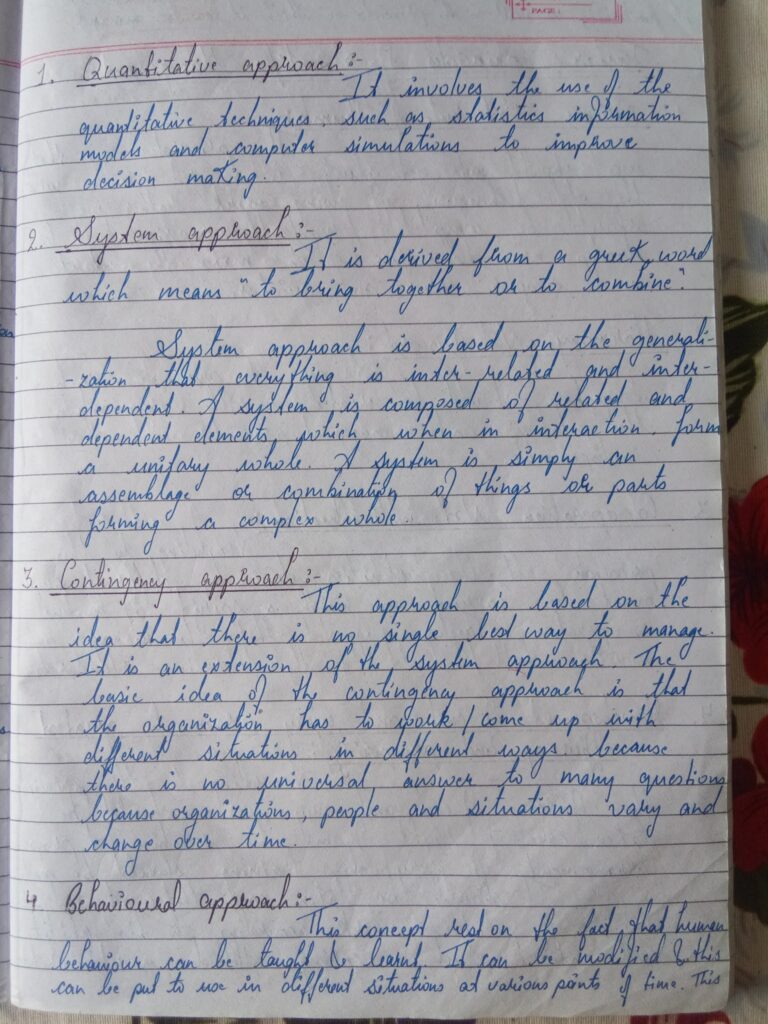 PAGE:
1. Quantitative approach:-
It involves the use of the
quantitative techniques, such as statistics information
models and computer simulations to improve
decision making.
2. System approach:-
It is derived from a greek word
which means "to bring together or to combine".
System approach is based on the generali-
-zation that everything is inter-related and inter-
dependent. A system is composed of related and
dependent elements which when in interaction, form
a unitary whole. A system is simply an
assemblage or combination of things or parts
forming a complex whole.
3. Contingency approach:-
This approach is based on the
idea that there is no single best way to manage.
It is an extension of the system approach. The
basic idea of the contingency approach is that
the organization has to work / come up with
different situations in different ways because
there is no universal answer to many questions
because organizations, people and situations vary and
change over time.
4 Behavioural approach:-
This concept rest on the fact that human
behaviour can be taught & learnt. It can be modified & this
can be put to use in different situations at various points of time. This